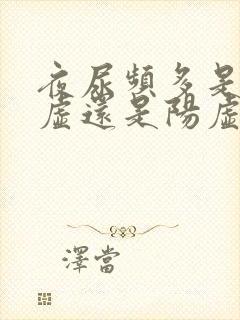 夜尿頻多是
虛還是陽虛
澤當